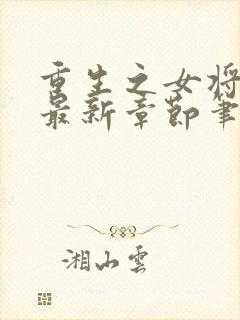 重生之女将
最新章節筆
湘山雲